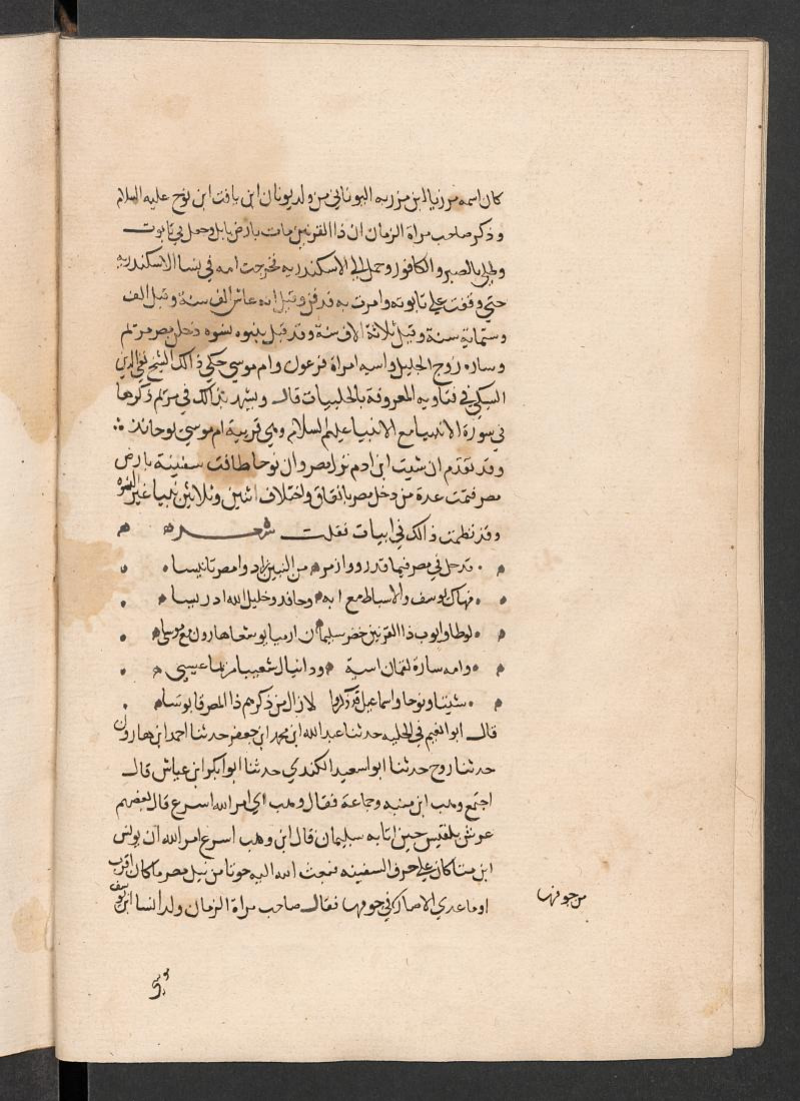 كان اسمه مرزبا ابن مرزبه اليوناني من ولد يونان ابن يافث ابن نوح عليه السلام
وذكر صاحب مراة الزمان ان ذا القرنين مات بارض بابل وجعل في تابوت
وطلي بالصبر والكافور وحمل الي الاسكندريه فخرجت امه في نسا الاسكندريه
حتي وقفت علي تابوته وامرت به فدفن وقيل انه عاش الف سنة وقيل الف
وستماية سنة وقيل ثلاثة الاف سنة وقد قيل بنبوه نسوه دخلن مصر مريم
وساره زوج الخليل واسيه امراة فرعون وام موسي حكي ذالك الشيخ تقي الدين
السبكي في فتاويه المعروفة بالحلبيات قال ويشهد لذالك في مريم ذكرها
في سورة الانبيا مع الانبيا عليهم السلام وهي قريبة ام موسي يوحاند
وقد تقدم ان شيث ابن ادم نزل مصر وان نوحا طافت سفينته بارض
مصر فتمت عدة من دخل مصر باتفاق واختلاف اثنين وثلاثين نبيا غير النسوه
وقد نظمت ذالك في ابيات فقلت شعر
قد حل في مصر فيما قد رووا زمر من النبيين زادوا مصر تانيسا
فهاك يوسف والاسباط مع ابه وحافد وخليل الله ادريسا
لوطا وايوب ذا القرنين خضر سليمان ارميا يوشعا هارون مع موسي
وامه سارة لقمان اسية ودانيال شعيبا مريما عيسي
شيثا ونوحا واسماعيل قد ذكروا لازال من ذكرهم ذا المصر مانوسا
قال ابو نعيم في الحليه حدثنا عبد الله ابن محمد ابن جعفر حدثنا احمد ابن هارون
حدثنا روح حدثنا ابو سعيد الكندي حدثنا ابو ابكر ابن عياش قال
اجتمع وهب ابن منبه وجماعة فقال وهب اي امر الله اسرع قال بعضهم
عرش بلقيس حين اتا به سليمان قال ابن وهب اسرع امر الله ان يونس
ابن متا كان علي حرف السفينه فبعث الله اليه حوتا من نيل مصر فما كان اقرب
او ما عدي الا صار في جوفها فقال صاحب مراة الزمان ولد انسا ابن يوسف
من جوفها
موسي